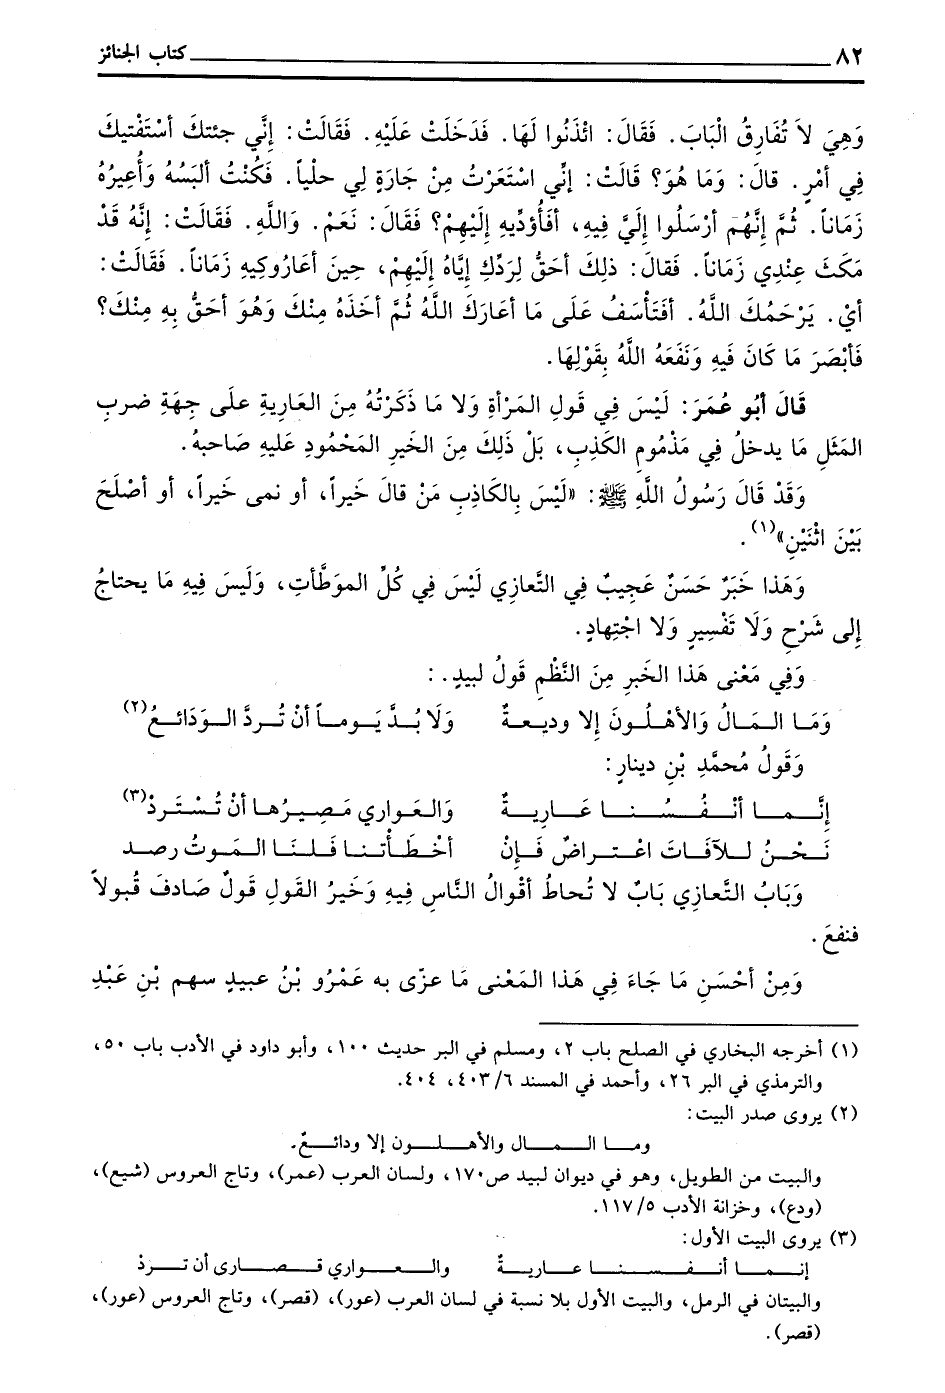 ٨٢ كتاب الجنائز
وَهِيَ لاَ تُفَارِقُ الْبَابَ. فَقَالَ: ائْذَنُوا لَهَا. فَدَخَلَتْ عَلَيْهِ. فَقَالَتْ: إِنَّي جئتكَ أسْتَفْتيكَ
فِي أمْرٍ. قالَ: وَمَا هُوَ؟ قَالَتْ: إنِّي اسْتَعَرْتُ مِنْ جَارَةٍ لِي حلْياً. فَكُنْتُ ألبَسُهُ وَأُعِيرُهُ
زَمَاناً. ثُمَّ إِنَّهُم أرْسَلُوا إلَيَّ فِيهِ، أفَأُؤدِّيهِ إلَيْهِمْ؟ فَقَالَ: نَعَمْ. وَاللَّهِ. فَقَالَتْ: إنَّهُ قَدْ
مَكَثَ عِنْدِي زَمَاناً. فَقالَ: ذلِكَ أحَقُّ لِرَدِّكِ إيَّاهُ إلَيْهِمْ، حِينَ أعَارُوكِيهِ زَمَاناً. فَقَالَتْ:
أيْ. يَرْحَمُكَ اللَّهُ. أفَتَأْسَفُ عَلَى مَا أعَارَكَ اللَّهُ ثُمَّ أخَذَهُ مِنْكَ وَهُوَ أحَقُّ بِهِ مِنْكَ؟
فَأبْصَرَ مَا كَانَ فَيهِ وَنَفَعَهُ اللَّهُ بِقَوْلِهَا.
قَالَ أبُو عُمَرَ: لَيْسَ فِي قَولِ المَرْأةِ وَلا مَا ذَكَرْتُهُ مِنَ العَاريةِ علَى جِهَةِ ضربِ
المَثَلِ مَا يدخلُ فِي مَذْمُومِ الكَذِبِ، بَلْ ذَلِكَ مِنَ الخَيرِ المَحْمُودِ عَليهِ صَاحبهُ.
وَقَدْ قَالَ رَسُولُ اللَّهِ ﷺ: «لَيْسَ بِالكَاذِبِ مَنْ قالَ خَيراً، أو نمى خَيراً، أو أصْلَحَ
بَيْنَ اثْنَيْنِ»(١).
وَهَذا خَبَرٌ حَسَنٌ عَجِيبٌ فِي التَّعازِي لَيْسَ فِي كُلِّ الموَطَّأتِ، وَلَيسَ فِيهِ مَا يحتاجُ
إلى شَرْحٍ وَلَا تَفْسِيرٍ وَلا اجْتِهادٍ.
وَفِي مَعْنى هَذا الخَبرِ مِنَ النَّظْمِ قَولُ لبيدٍ. :
وَمَا المَالُ وَالأهْلُونَ إلا وديعةٌ وَلَا بُدَّ يَوماً أنْ تُردَّ الوَدَائعُ(٢)
وَقَولُ مُحمَّدِ بْنِ دينارٍ:
إنَّما أنْفُسُنا عَاريةٌ وَالعَواري مَصِيرُها أنْ تُسْتَردْ(٣)
نَحْنُ للآفَاتَ اعْتراضٌ فَإنْ أخْطَأتنا فَلنَا المَوتُ رصد
وَبَابُ التَّعازِي بَابٌ لا تُحاطُ أقْوالُ النَّاسِ فِيهِ وَخَيرُ القَولِ قَولٌ صَادفَ قُبولاً
فنفعَ.
وَمِنْ أحْسَنِ مَا جَاءَ فِي هَذا المَعْنى مَا عزّى به عَمْرُو بْنُ عبيدٍ سهم بْنِ عَبْدِ
(١) أخرجه البخاري في الصلح باب ٢، ومسلم في البر حديث ١٠٠، وأبو داود في الأدب باب ٥٠،
والترمذي في البر ٢٦، وأحمد في المسند ٤٠٣/٦، ٤٠٤.
(٢) يروى صدر البيت:
وما المال والأهلون إلا ودائعٌ.
والبيت من الطويل، وهو في ديوان لبيد ص١٧٠، ولسان العرب (عمر)، وتاج العروس (شيع)،
(ودع)، وخزانة الأدب ١١٧/٥.
(٣) يروى البيت الأول:
إنما أنفسنا عاريةٌ والعواري قصارى أن تردْ
والبيتان في الرمل، والبيت الأول بلا نسبة في لسان العرب (عور)، (قصر)، وتاج العروس (عور)،
(قصر).